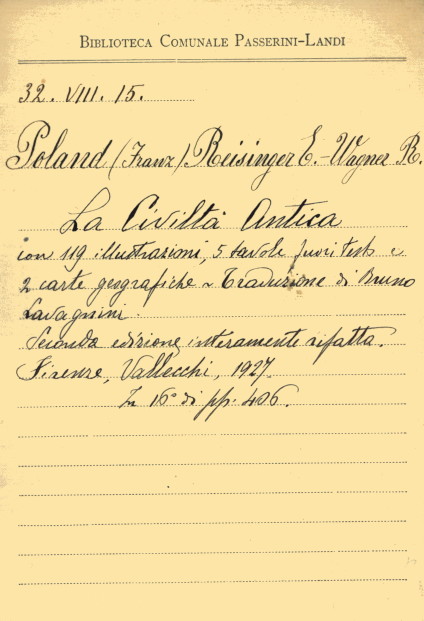 BIBLIOTECA COMUNALE PASSERINI-LANDI
32. VIII. 15.
Poland (Franz) Reisinger E. - Wagner R.
La Civiltà Antica
con 119 illustrazioni, 5 tavole fuori testo e
2 carte geografiche - Traduzione di Bruno
Lavagnini.
Seconda edizione interamente rifatta.
Firenze, Vallecchi, 1927.
In 16° di pp. 406.